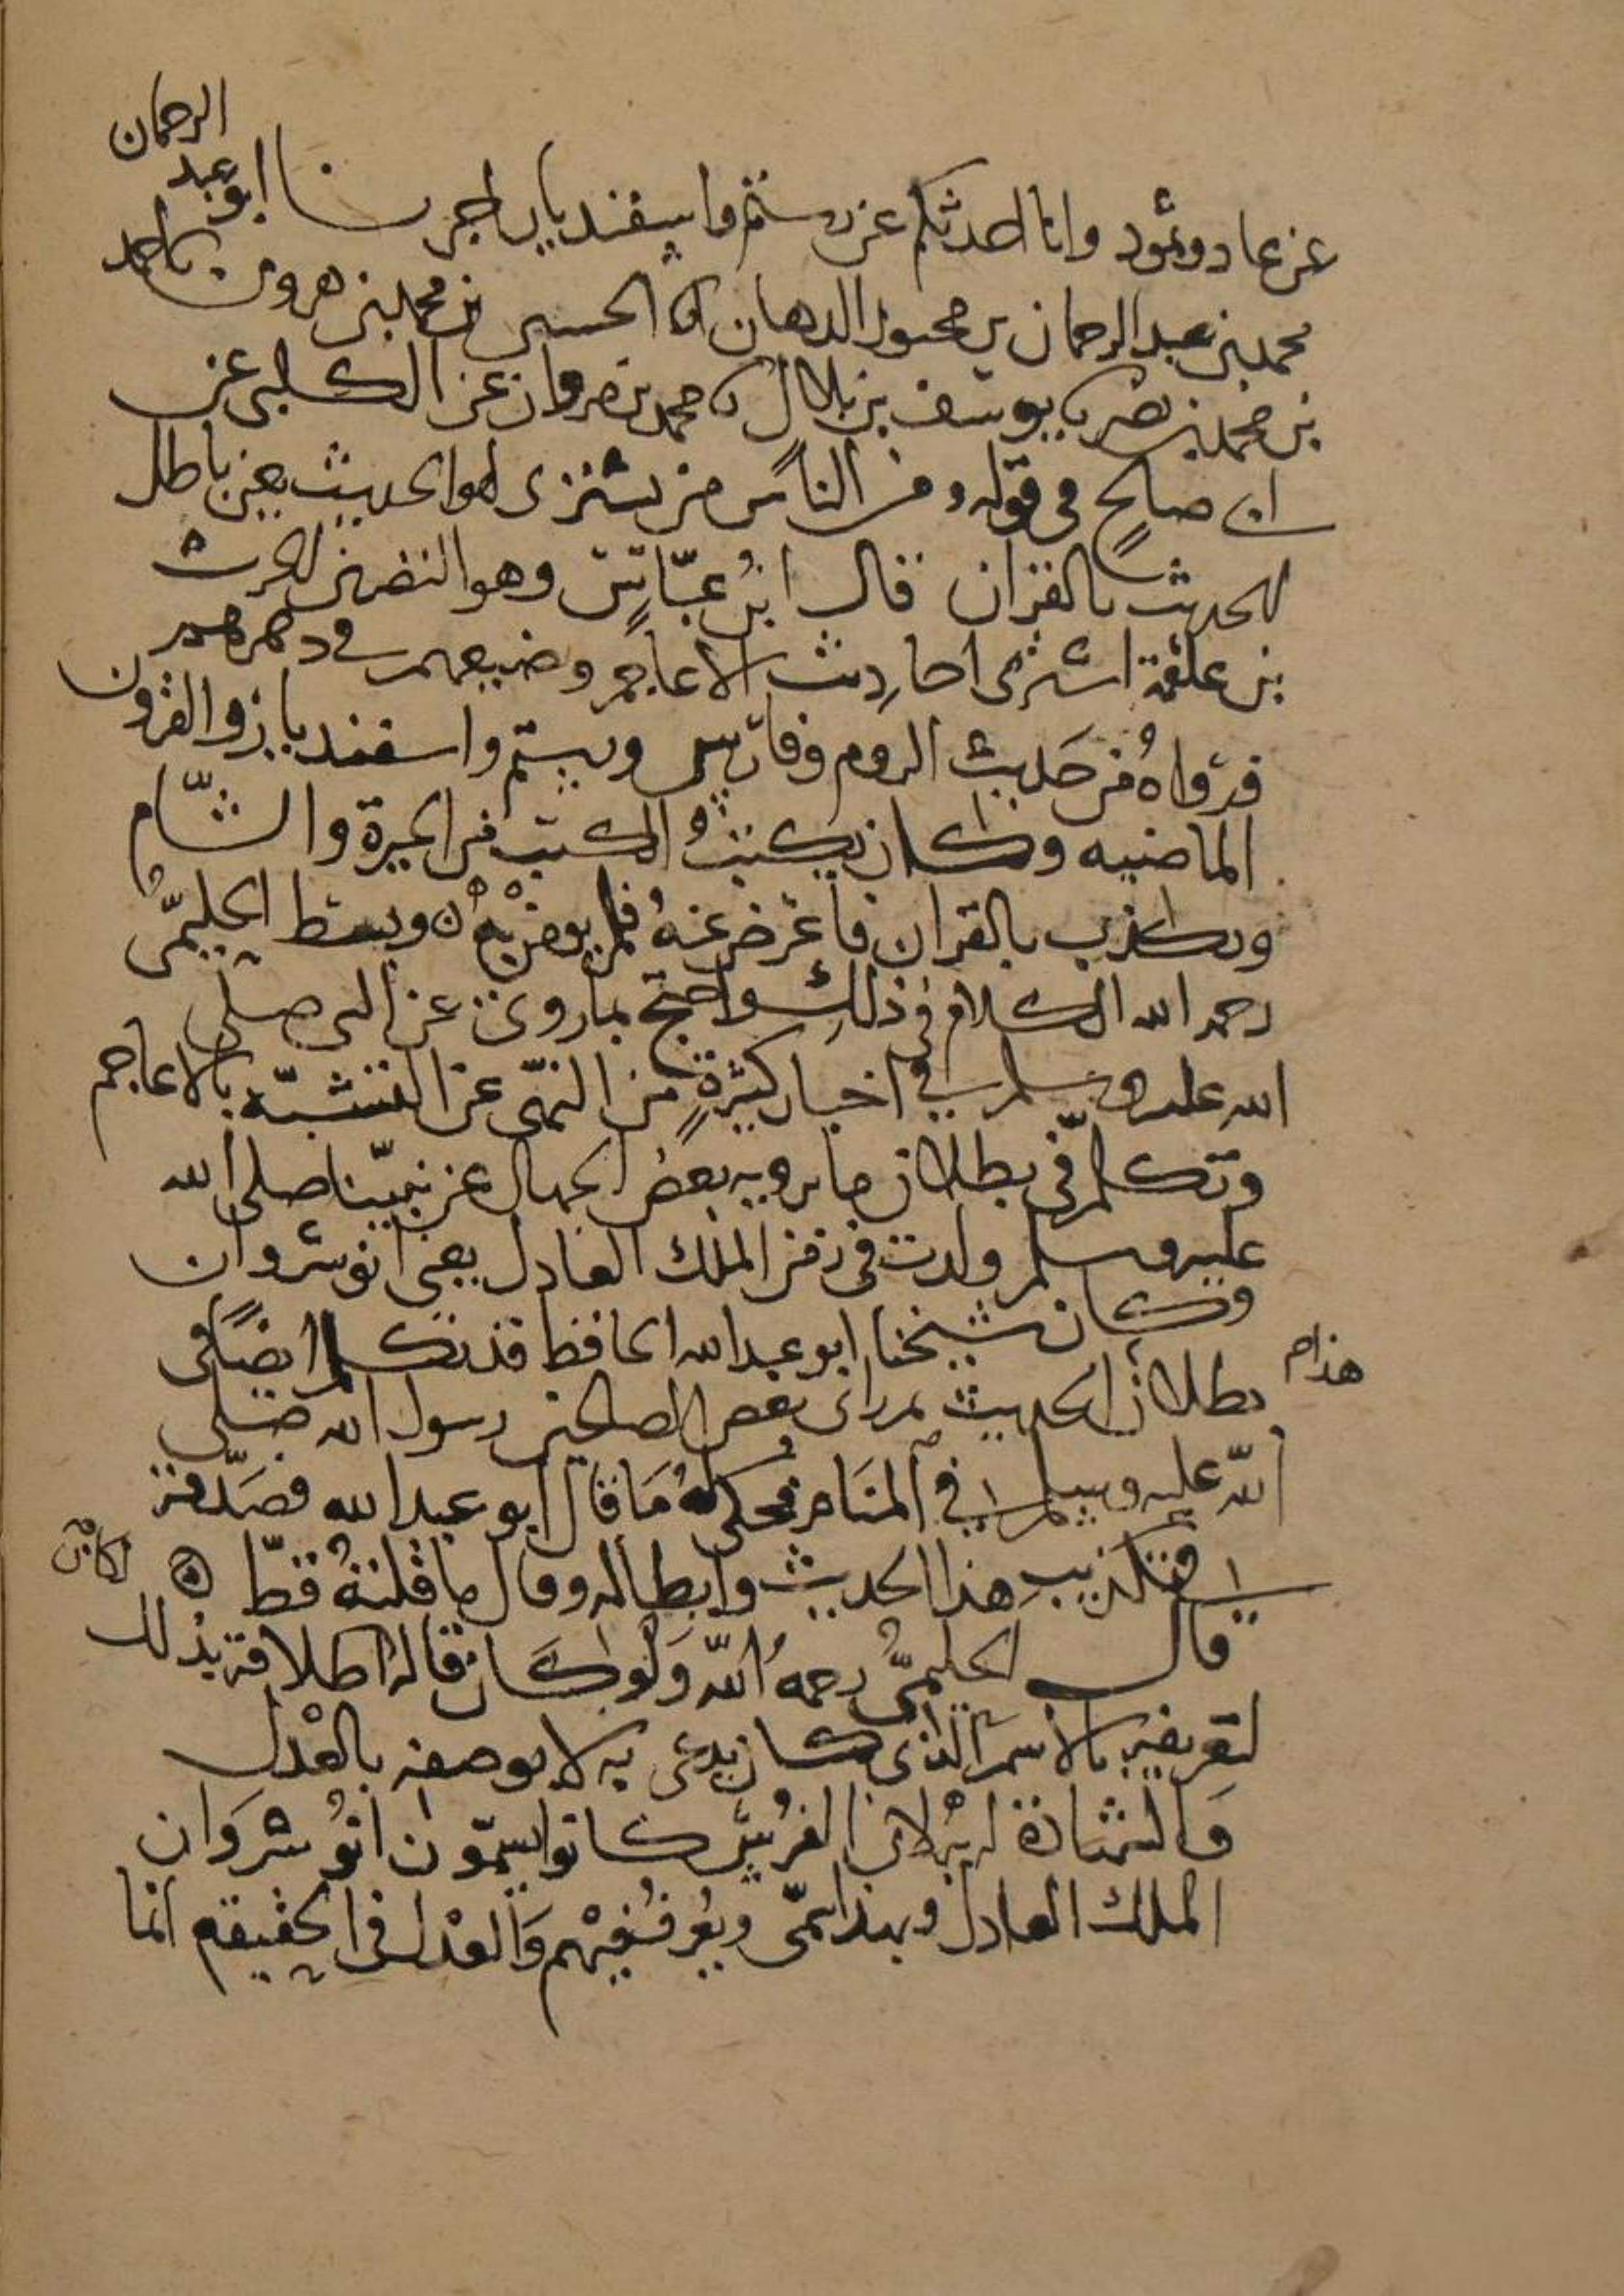 عن عاد وثمود وانا احدثكم عن رستم واسفنديار اخبرنا ابو عبد الرحمان
محمد بن عبد الرحمان بن محبور الدهان انا الحسين بن محمد بن هرون نا احمد
بن محمد بن نصر نا يوسف بن بلال نا محمد بن مروان عن الكلبى عن
ابى صالح فى قوله ومن الناس من يشترى لهو الحديث يعنى باطل
الحديث بالقران قال ابن عباس وهو النضر بن الحرث
بن علقمة اشترى احاديث الاعاجم وضيعهم فى دهرهم
فرواه من حديث الروم وفارس ورستم واسفنديار والقرون
الماضيه وكان يكتب الكتب من الحيرة والشام
ويكذب بالقران فاعرض عنه فلم يومن به وبسط الحليمى
رحمه الله الكلام فى ذلك واحتج بما روى عن النبى صلى
الله عليه وسلم فى اخبار كثيرة من النهى عن التشبه بالاعاجم
وتكلم فى بطلان ما يرويه بعض الجهال عن نبينا صلى الله
عليه وسلم ولدت فى زمن الملك العادل يعنى انوشروان
وكان شيخنا ابو عبد الله الحافظ قد تكلم ايضا فى
بطلان هذا الحديث ثم راى بعض الصالحين رسول الله صلى
الله عليه وسلم فى المنام فحكى له ما قال ابو عبد الله فصدقه
فى تكذيب هذا الحديث وابطاله وقال ما قلته قط
قال الحليمى رحمه الله ولو كان قاله لكان اطلاقه بذلك
لتعريفه بالاسم الذى كان يدعى به لا بوصفه بالعدل
والشهادة له به لان الفرس كانوا يسمون انوشروان
الملك العادل وبهذا سمى ويعرف فيهم والعدل فى الحقيقه انما